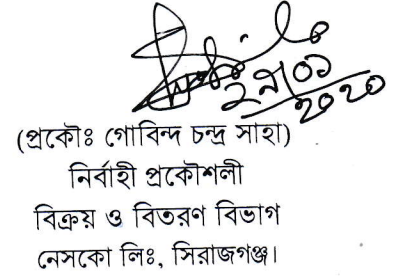 ২০২০
(প্রকৌঃ গোবিন্দ চন্দ্র সাহা)
নির্বাহী প্রকৌশলী
বিক্রয় ও বিতরণ বিভাগ
নেসকো লিঃ, সিরাজগঞ্জ।